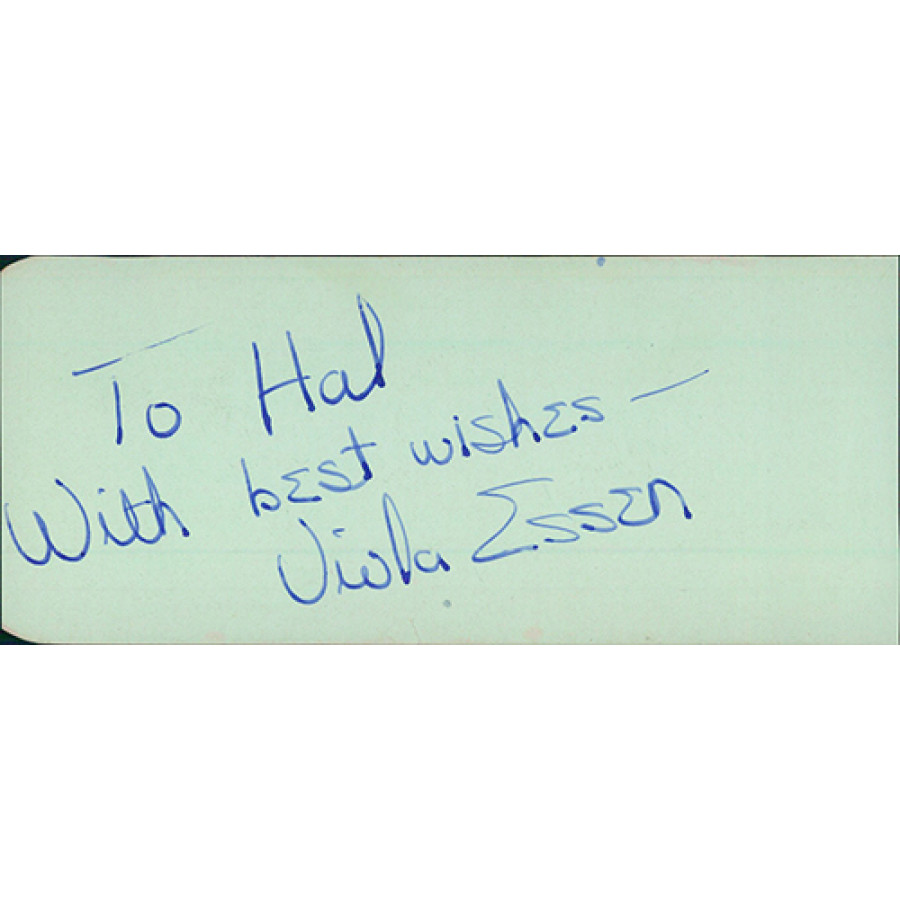 To Hal
With best wishes —
Viola Essen